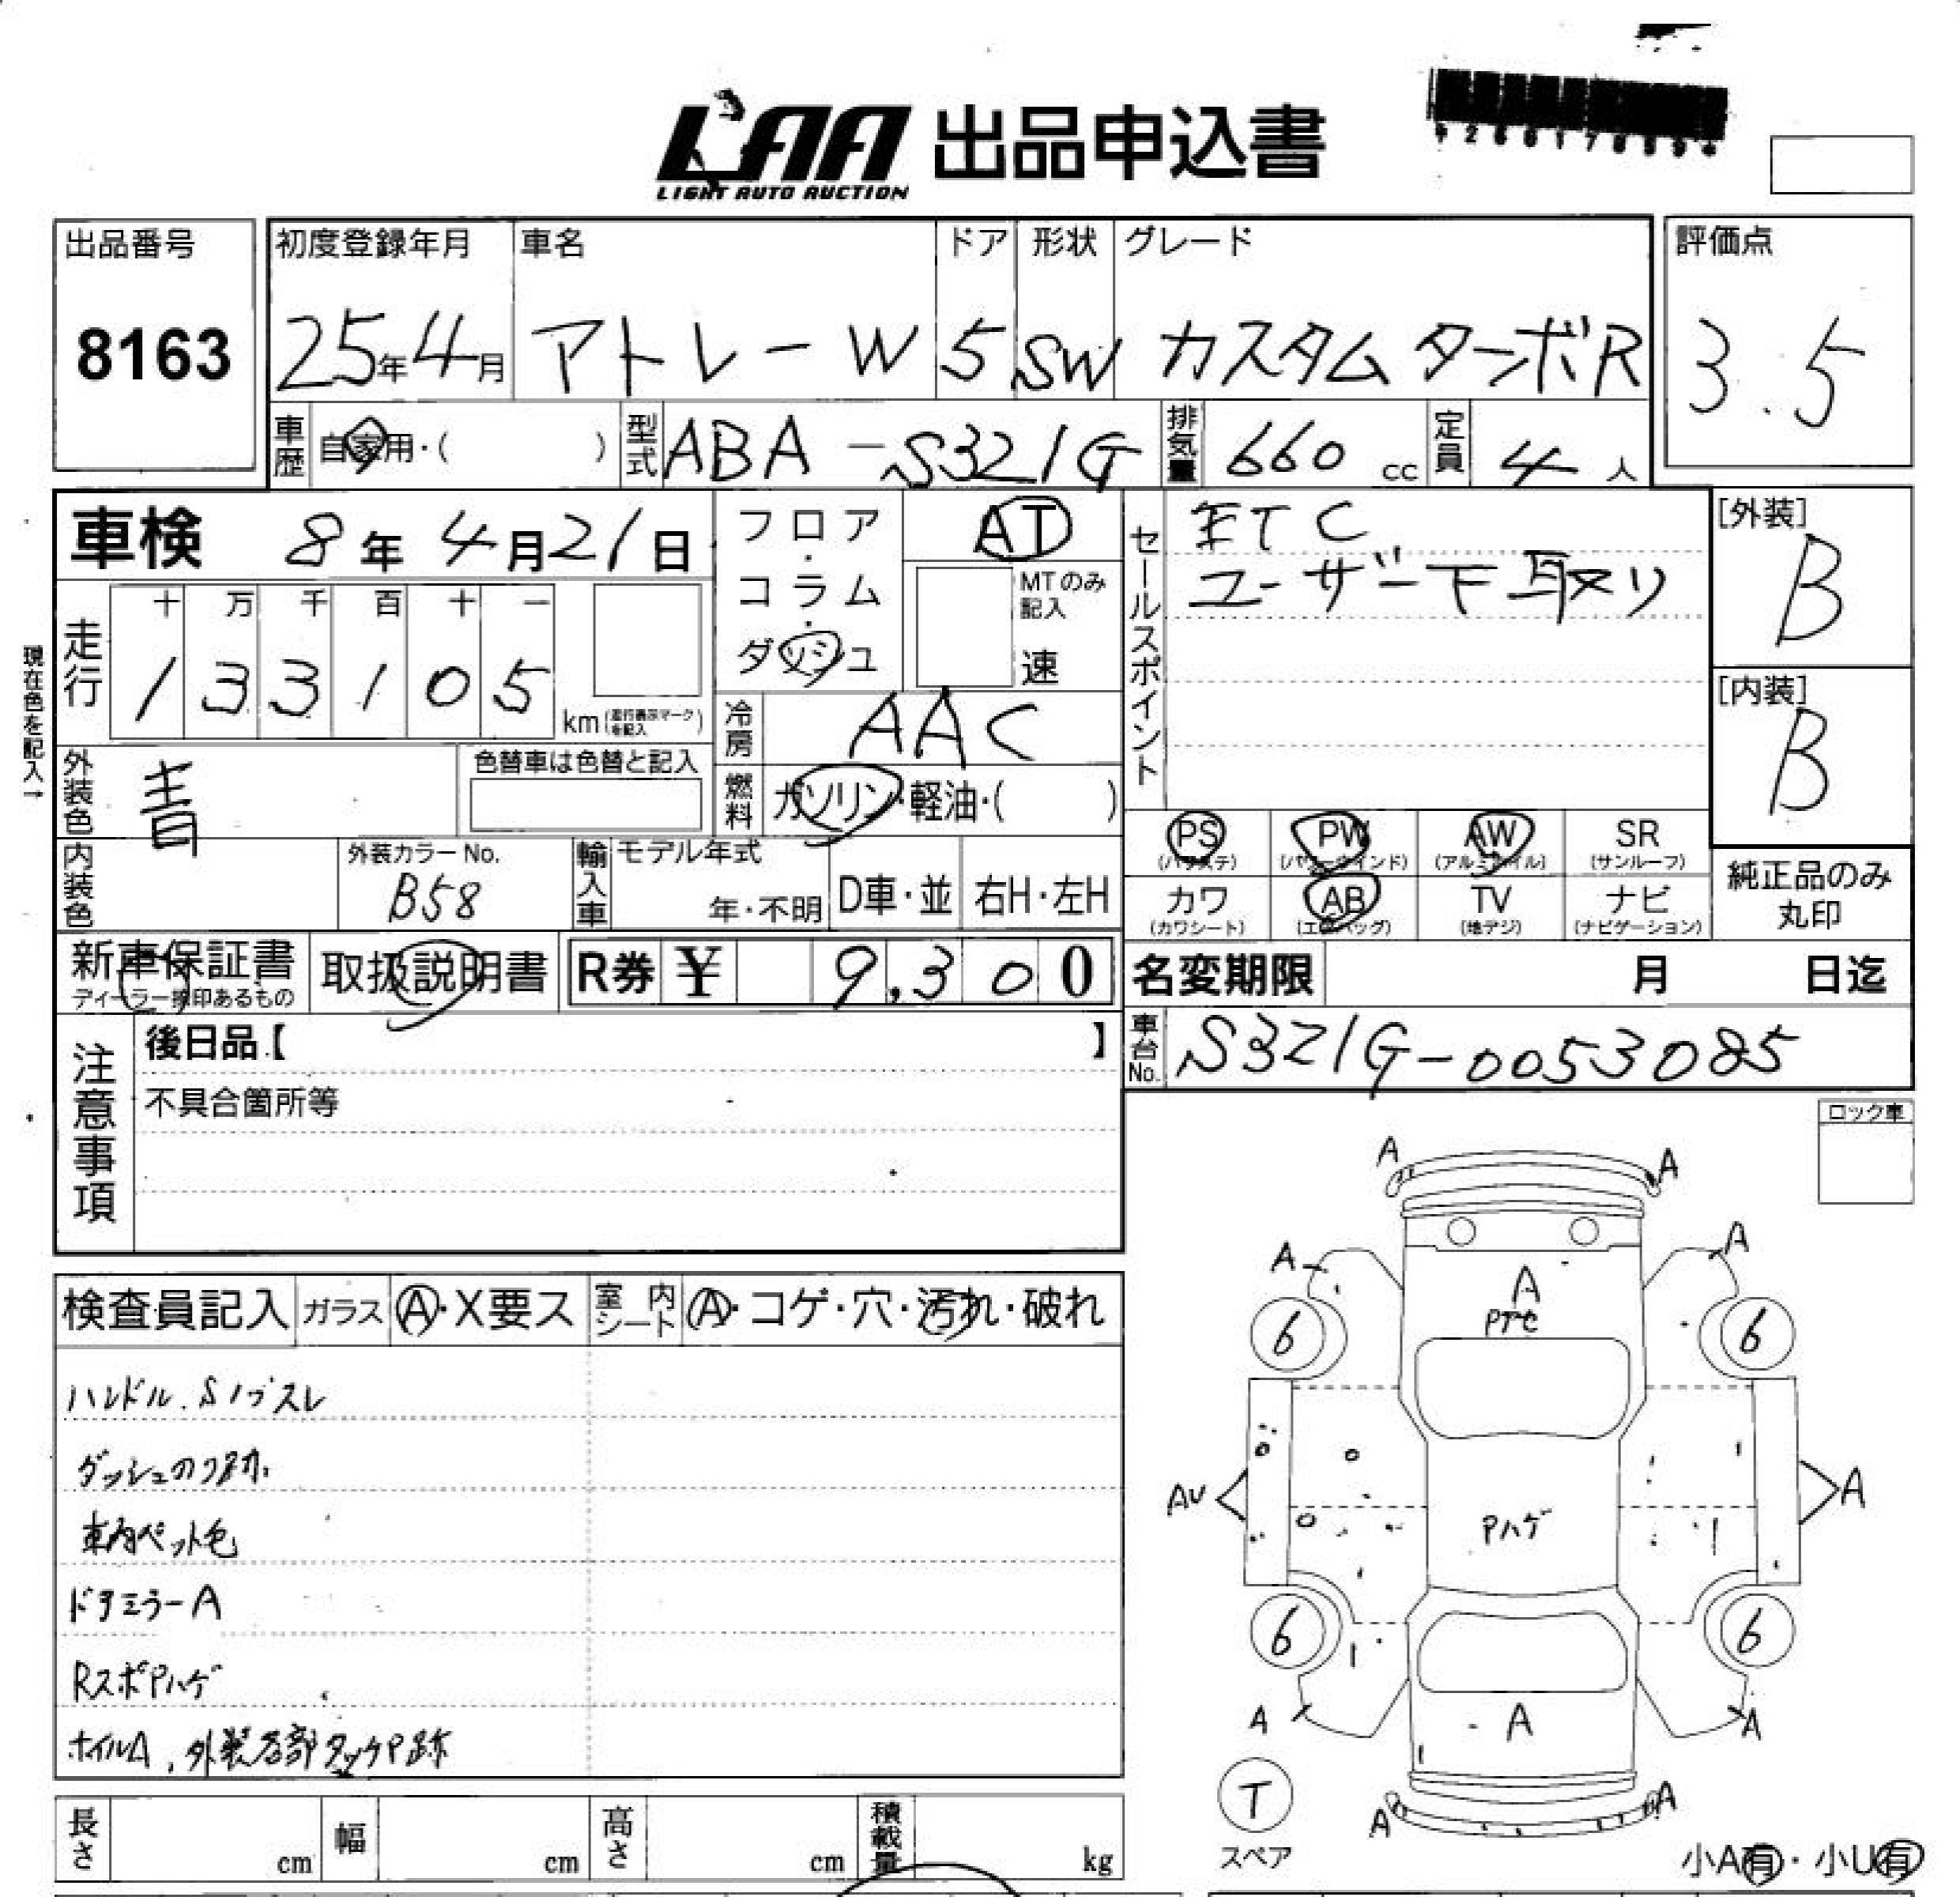 LAA 出品申込書
LIGHT AUTO AUCTION
出品番号 初度登録年月 車名 ドア 形状 グレード 評価点
8163 25年4月 アトレーW 5 SW カスタムターボR 3.5
車歴 自家用・( ) 型式 ABA-S321G 排気量 660 cc 定員 4 人
車検 8年 4月21日 フロア・コラム・ダッシュ AT
MTのみ記入 速
セールスポイント ETC
ユーザー下取り
[外装] B
[内装] B
現在色を記入→
走行 十 万 千 百 十 一
1 3 3 1 0 5 km (走行表示マークを記入)
冷房 AAC
外装色 青 色替車は色替と記入
燃料 ガソリン・軽油・( )
内装色 外装カラーNo. B58
輸入車 モデル年式 年・不明 D車・並 右H・左H
PS (パワステ) PW (パワーウインド) AW (アルミホイル) SR (サンルーフ)
カワ (カワシート) AB (エアバッグ) TV (地デジ) ナビ (ナビゲーション)
純正品のみ丸印
新車保証書 ディーラー捺印あるもの 取扱説明書 R券 ¥ 9,300
名変期限 月 日迄
車台No. S321G-0053085
注意事項 後日品【 】
不具合箇所等
ロック車
検査員記入 ガラス A・X要ス 室内シート A・コゲ・穴・汚れ・破れ
ハンドル.Sノブスレ
ダッシュのり跡.
車内ペット毛
ドアミラーA
RスポPハゲ
ホイルA,外装各部タッチP跡
A A
A A
A
6 6
AU A
Pハゲ
6 6
A A A
T
スペア
A A
小A有・小U有
長さ cm 幅 cm 高さ cm 積載量 kg